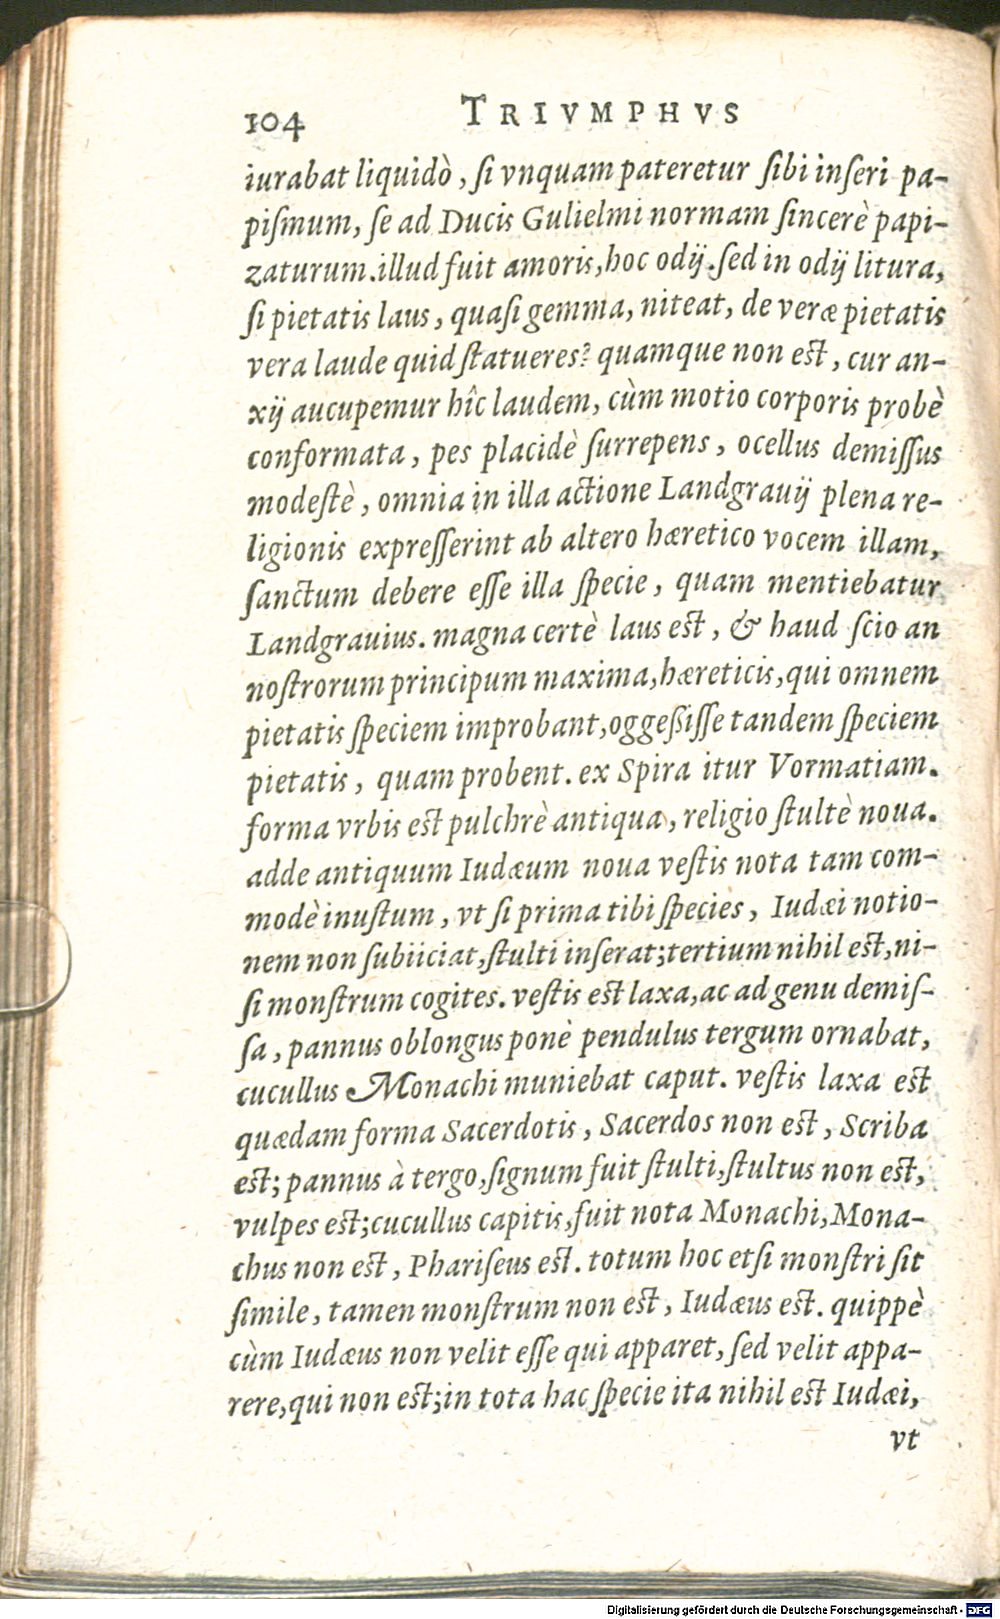 104 TRIVMPHVS
iurabat liquidò, si vnquam pateretur sibi inseri pa-
pismum, se ad Ducis Gulielmi normam sincerè papi-
zaturum. illud fuit amoris, hoc odij. sed in odij litura,
si pietatis laus, quasi gemma, niteat, de veræ pietatis
vera laude quid statueres? quamque non est, cur an-
xij aucupemur hîc laudem, cùm motio corporis probè
conformata, pes placidè surrepens, ocellus demissus
modestè, omnia in illa actione Landgrauij plena re-
ligionis expresserint ab altero hæretico vocem illam,
sanctum debere esse illa specie, quam mentiebatur
Landgrauius. magna certè laus est, & haud scio an
nostrorum principum maxima, hæreticis, qui omnem
pietatis speciem improbant, oggessisse tandem speciem
pietatis, quam probent. ex Spira itur Vormatiam.
forma vrbis est pulchrè antiqua, religio stultè noua.
adde antiquum Iudæum noua vestis nota tam com-
modè inustum, vt si prima tibi species, Iudæi notio-
nem non subiiciat, stulti inserat; tertium nihil est, ni-
si monstrum cogites. vestis est laxa, ac ad genu demis-
sa, pannus oblongus ponè pendulus tergum ornabat,
cucullus Monachi muniebat caput. vestis laxa est
quædam forma Sacerdotis, Sacerdos non est, Scriba
est; pannus à tergo, signum fuit stulti, stultus non est,
vulpes est; cucullus capitis, fuit nota Monachi, Mona-
chus non est, Phariseus est. totum hoc etsi monstri sit
simile, tamen monstrum non est, Iudæus est. quippè
cùm Iudæus non velit esse qui apparet, sed velit appa-
rere, qui non est; in tota hac specie ita nihil est Iudæi,
vt
Digitalisierung gefördert durch die Deutsche Forschungsgemeinschaft - DFG